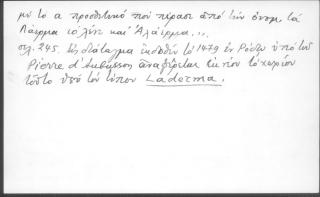 μὲ τὸ α προσθετικὸ ποὺ πέρασε ἀπὸ τὴν ὀνομ. τὰ
Λάερμα τὸ λένε καὶ Ἀλάερμα...
σελ. 245. Εἰς διάταγμα ἐκδοθὲν τὸ 1479 ἐν Ρόδῳ ὑπὸ τοῦ
Pierre d'Aubusson ἀναφέρεται καὶ τὸ χωρίον
τοῦτο ὑπὸ τὸν τύπον Laderma.